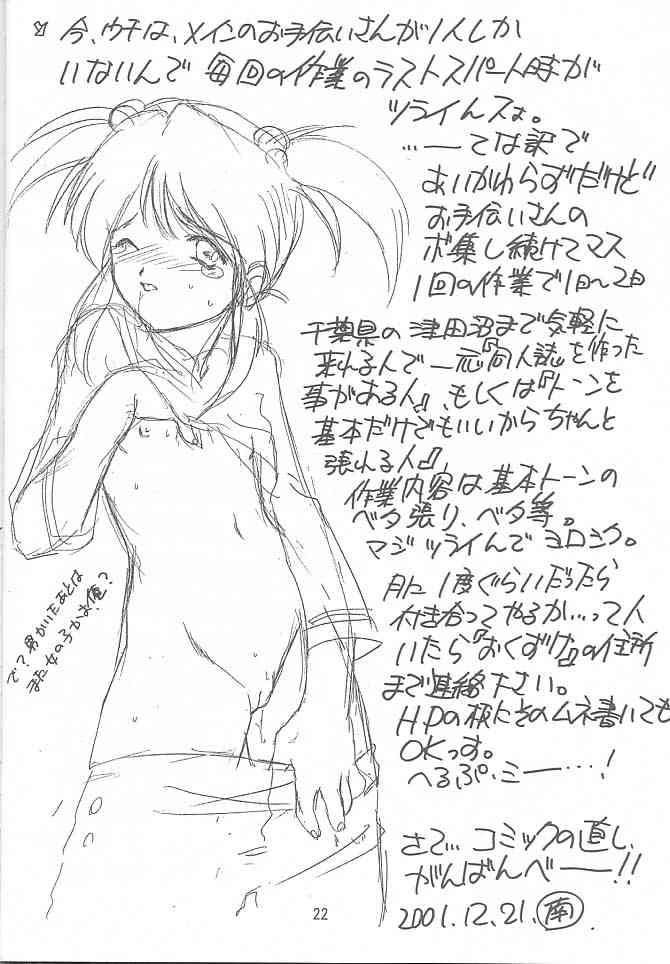 今、ウチは、メインのお手伝いさんが1人しか
いないんで 毎回の作業のラストスパート時が
ツライんスょ。
…ーては訳で
あいかわらずだけど
お手伝いさんの
ボ集し続けてマス
1回の作業で1日〜2日
千葉県の津田沼まで気軽に
来れる人で一応『同人誌を作った
事がある人』、もしくは『トーンを
基本だけでもいいからちゃんと
張れる人』、
作業内容は基本トーンの
ベタ張り、ベタ等。
マジツライんでヨロシク。
月に1度ぐらいだったら
付き合ってやるか…って人
いたら『おくずけ』の住所
まで連絡下さい。
H.Pの板にそのムネ書いても
OKっす。
へるぷ・ミー…!
さて… コミックの直し、
がんばんべー!!
2001.12.21.南.
で?男かいたあとは
また女の子かよ俺?
22